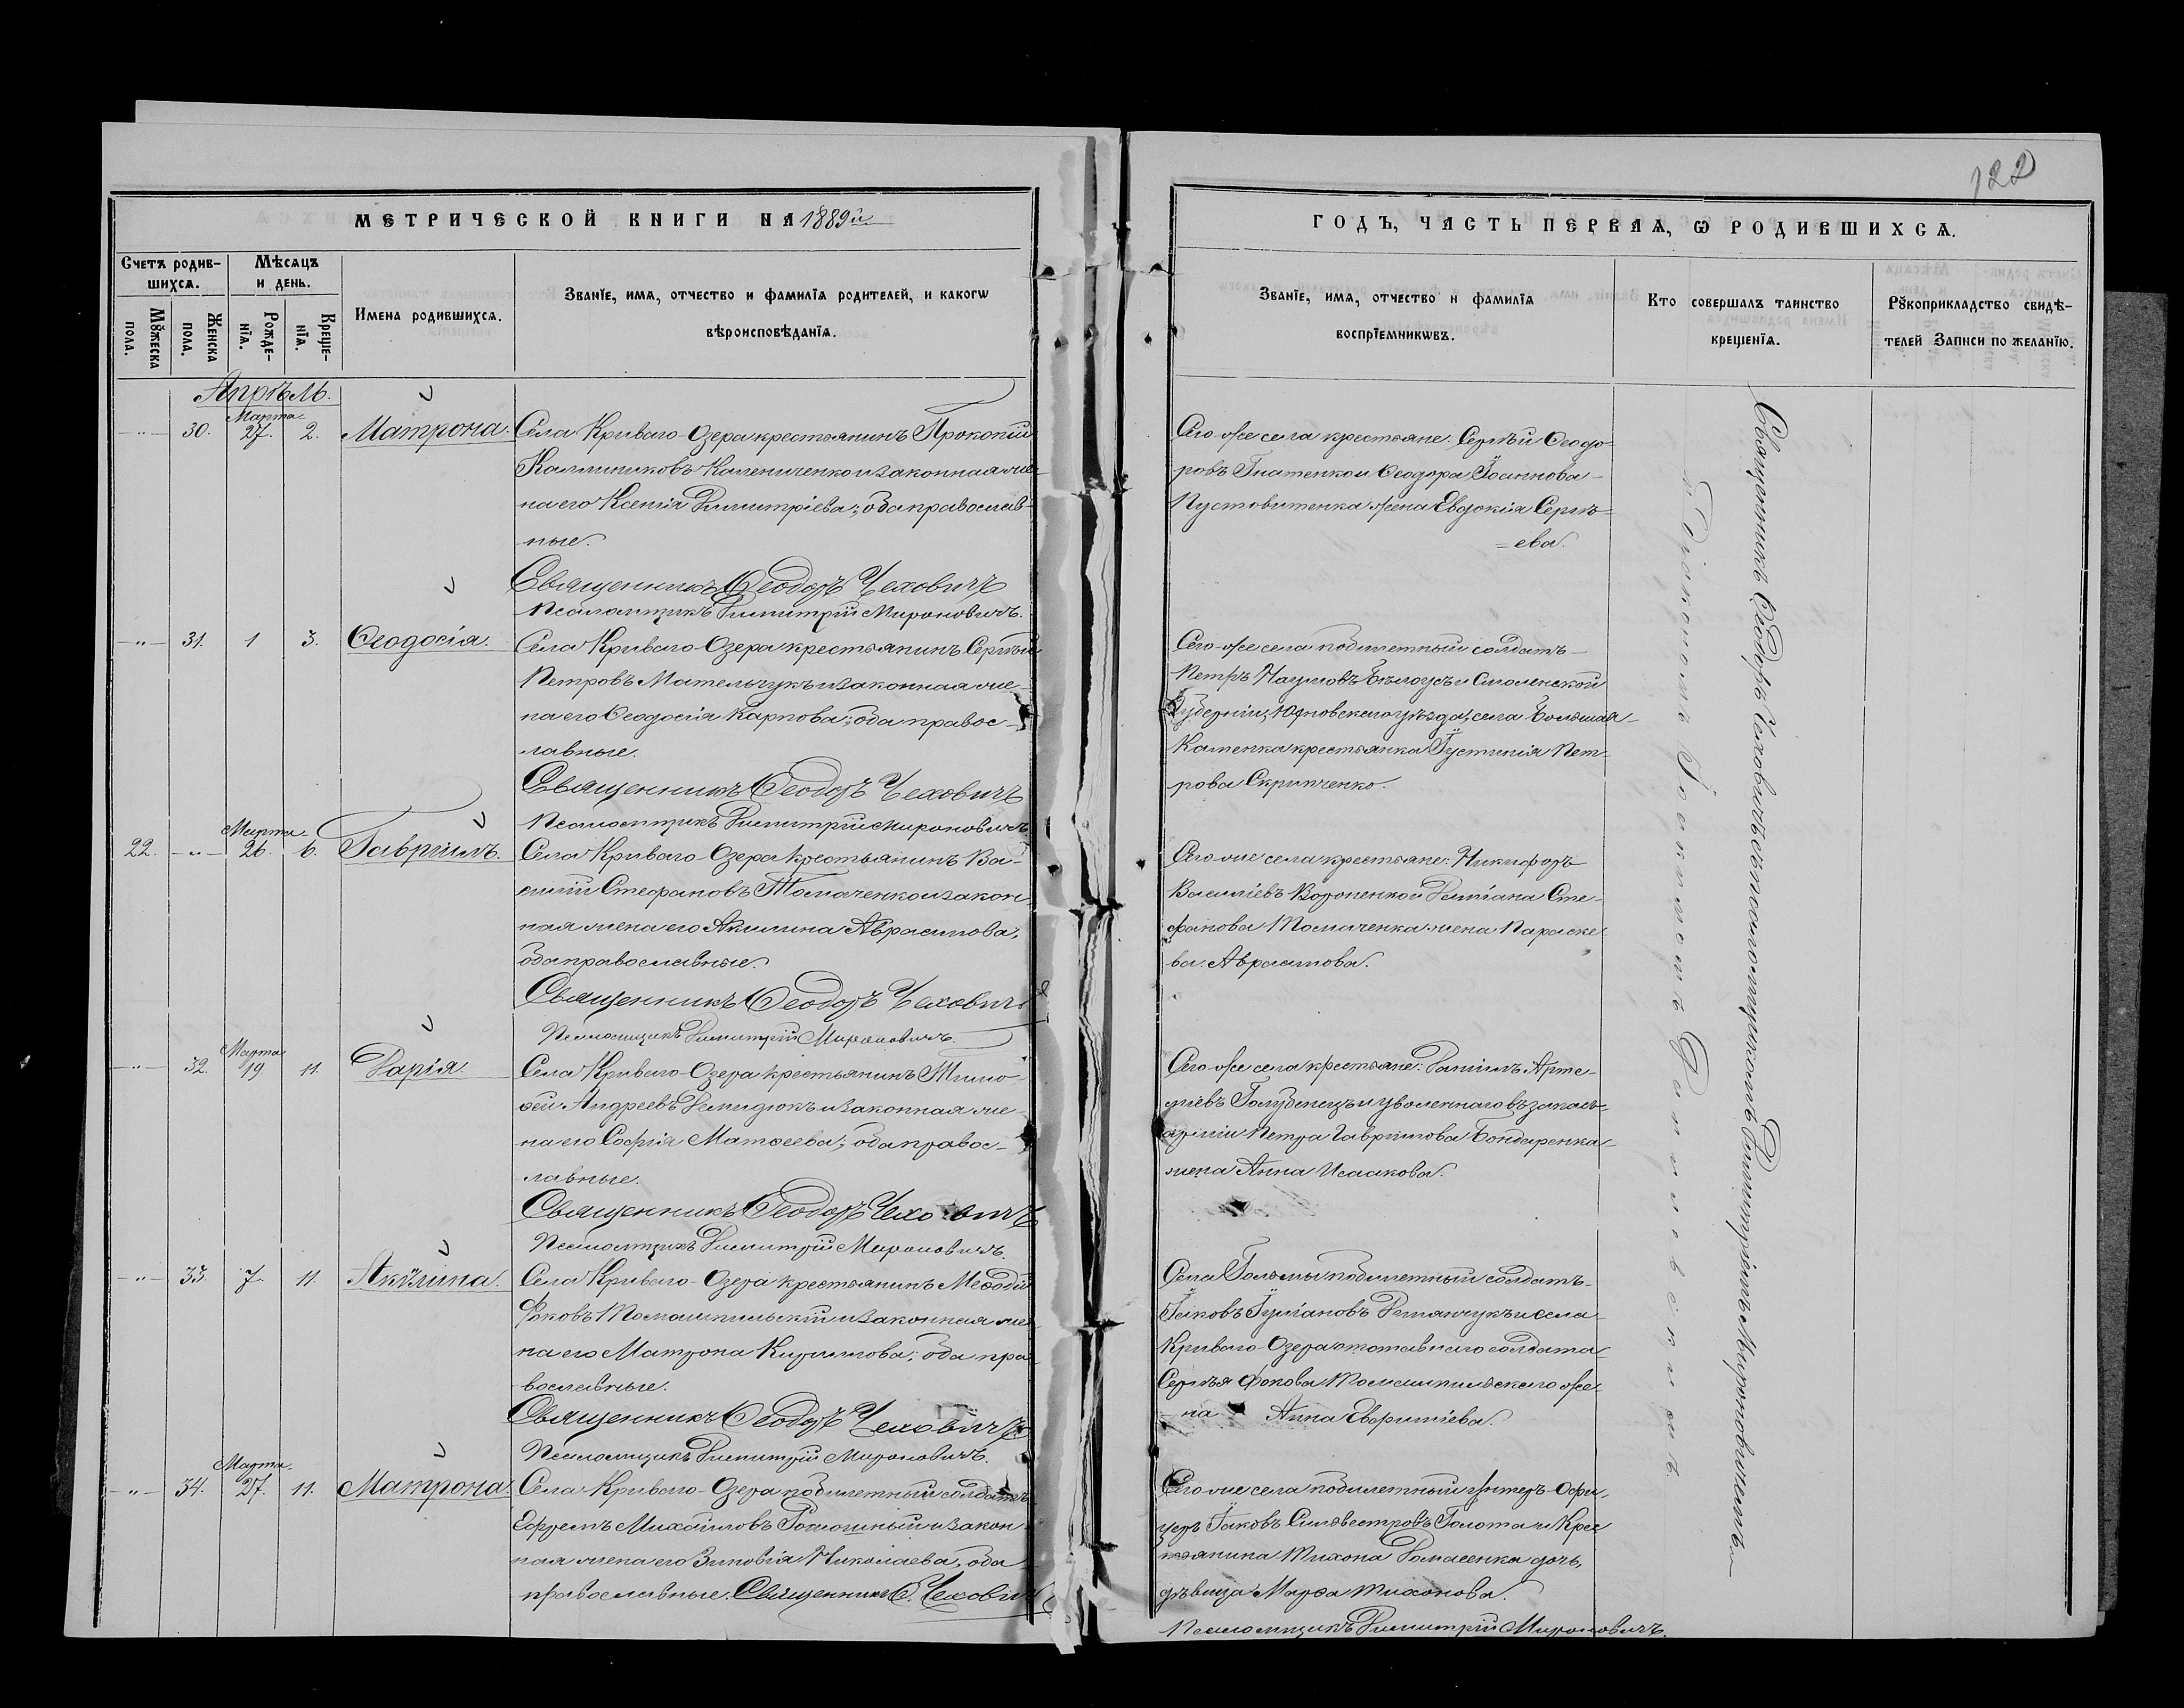 122
МЕТРИЧЕСКОЙ КНИГИ НА 1889й
ГОДЪ, ЧАСТЬ ПЕРВАѦ, Ѡ РОДИВШИХСѦ.
Счетъ родив-
шихсѧ.
Мѣсѧцъ
и день.
Мꙋжеска
пола.
Женска
пола.
Рожде-
нїѧ.
Креще-
нїѧ.
Имена родившихсѧ.
Званїе, имѧ, отчество и фамилїѧ родителей, и какогѡ
вѣроисповѣданїѧ.
Званїе, имѧ, отчество и фамилїѧ
воспрїемникѡвъ.
Кто совершалъ таинство
крещенїѧ.
Рꙋкоприкладство свидѣ-
телей записи по желанїю.
Апрѣль.
Марта
-"- 30. 27. 2. Матрона.
Села Криваго-Озера крестьянинъ Прокопій
Каллиниковъ Калениченко и законная же-
на его Ксенія Димитріева; оба православ-
ные.
Священникъ Ѳеодоръ Чеховичъ
Псаломщикъ Димитрій Мироновичъ.
Сего-же села крестьяне: Сергѣй Ѳеодо-
ровъ Гнатенко и Ѳеодора Іоаннова
Пустовитенка жена Евдокія Сергѣ=
=ева.
-"- 31. 1 3. Ѳеодосія.
Села Криваго-Озера крестьянинъ Сергѣй
Петровъ Мательчукъ и законная же-
на его Ѳеодосія Карпова; оба правос-
лавные.
Священникъ Ѳеодоръ Чеховичъ
Псаломщикъ Димитрій Мироновичъ.
Сего-же села побилетный солдатъ
Петръ Наумовъ Бѣлоусъ и Смоленской
Губерніи, Юхновскаго уѣзда, села Большая
Каменка крестьянка Іустинія Пет-
рова Скрипченко.
Марта
22. -"- 26. 6. Гавріилъ.
Села Криваго-Озера крестьянинъ Ва-
силій Стефановъ Томаченко и закон-
ная жена его Акилина Аврамова,
оба православные.
Священникъ Ѳеодоръ Чеховичъ
Псаломщикъ Димитрій Мироновичъ.
Сего же села крестьяне: Никифоръ
Василіевъ Вороненко и Даміана Сте-
фанова Томаченка жена Параске-
ва Аврамова.
Марта
-"- 32. 19. 11. Дарія.
Села Криваго-Озера крестьянинъ Тимо-
ѳей Андреевъ Демидюкъ и законная же-
на его Софія Матѳеева; оба правос-
лавные.
Священникъ Ѳеодоръ Чеховичъ
Псаломщикъ Димитрій Мироновичъ.
Сего-же села крестьяне: Даніилъ Арте-
міевъ Голубенецъ и уволеннаго въ запасъ
арміи Петра Гавриілова Бондаренка
жена Анна Исаакова.
-"- 33. 7. 11. Акѷлина.
Села Криваго-Озера крестьянинъ Меѳодій
Фоковъ Томашпильскій и законная же-
на его Матрона Кириллова; оба пра-
вославные.
Священникъ Ѳеодоръ Чеховичъ
Псаломщикъ Димитрій Мироновичъ.
Села Гольмы побилетный солдатъ
Іаковъ Іуліановъ и села
Криваго-Озера отставнаго солдата
Сергѣя Фокова Томашпильскаго же-
на Анна
Марта
-"- 34. 27. 11. Матрона.
Села Криваго-Озера побилетный солдатъ
Ефремъ Михаиловъ и закон-
ная жена его Зиновія Николаева, оба
православные. Священникъ Ѳ. Чеховичъ
Сего же села побилетный унтеръ-офи-
церъ Іаковъ Сильвестровъ Голота и крес-
тьянина Тихона дочь,
дѣвица Марѳа Тихонова.
Псаломщикъ Димитрій Мироновичъ.
Священникъ Ѳеодоръ Чеховичъ съ псаломщикомъ Димитріемъ Мироновичемъ.